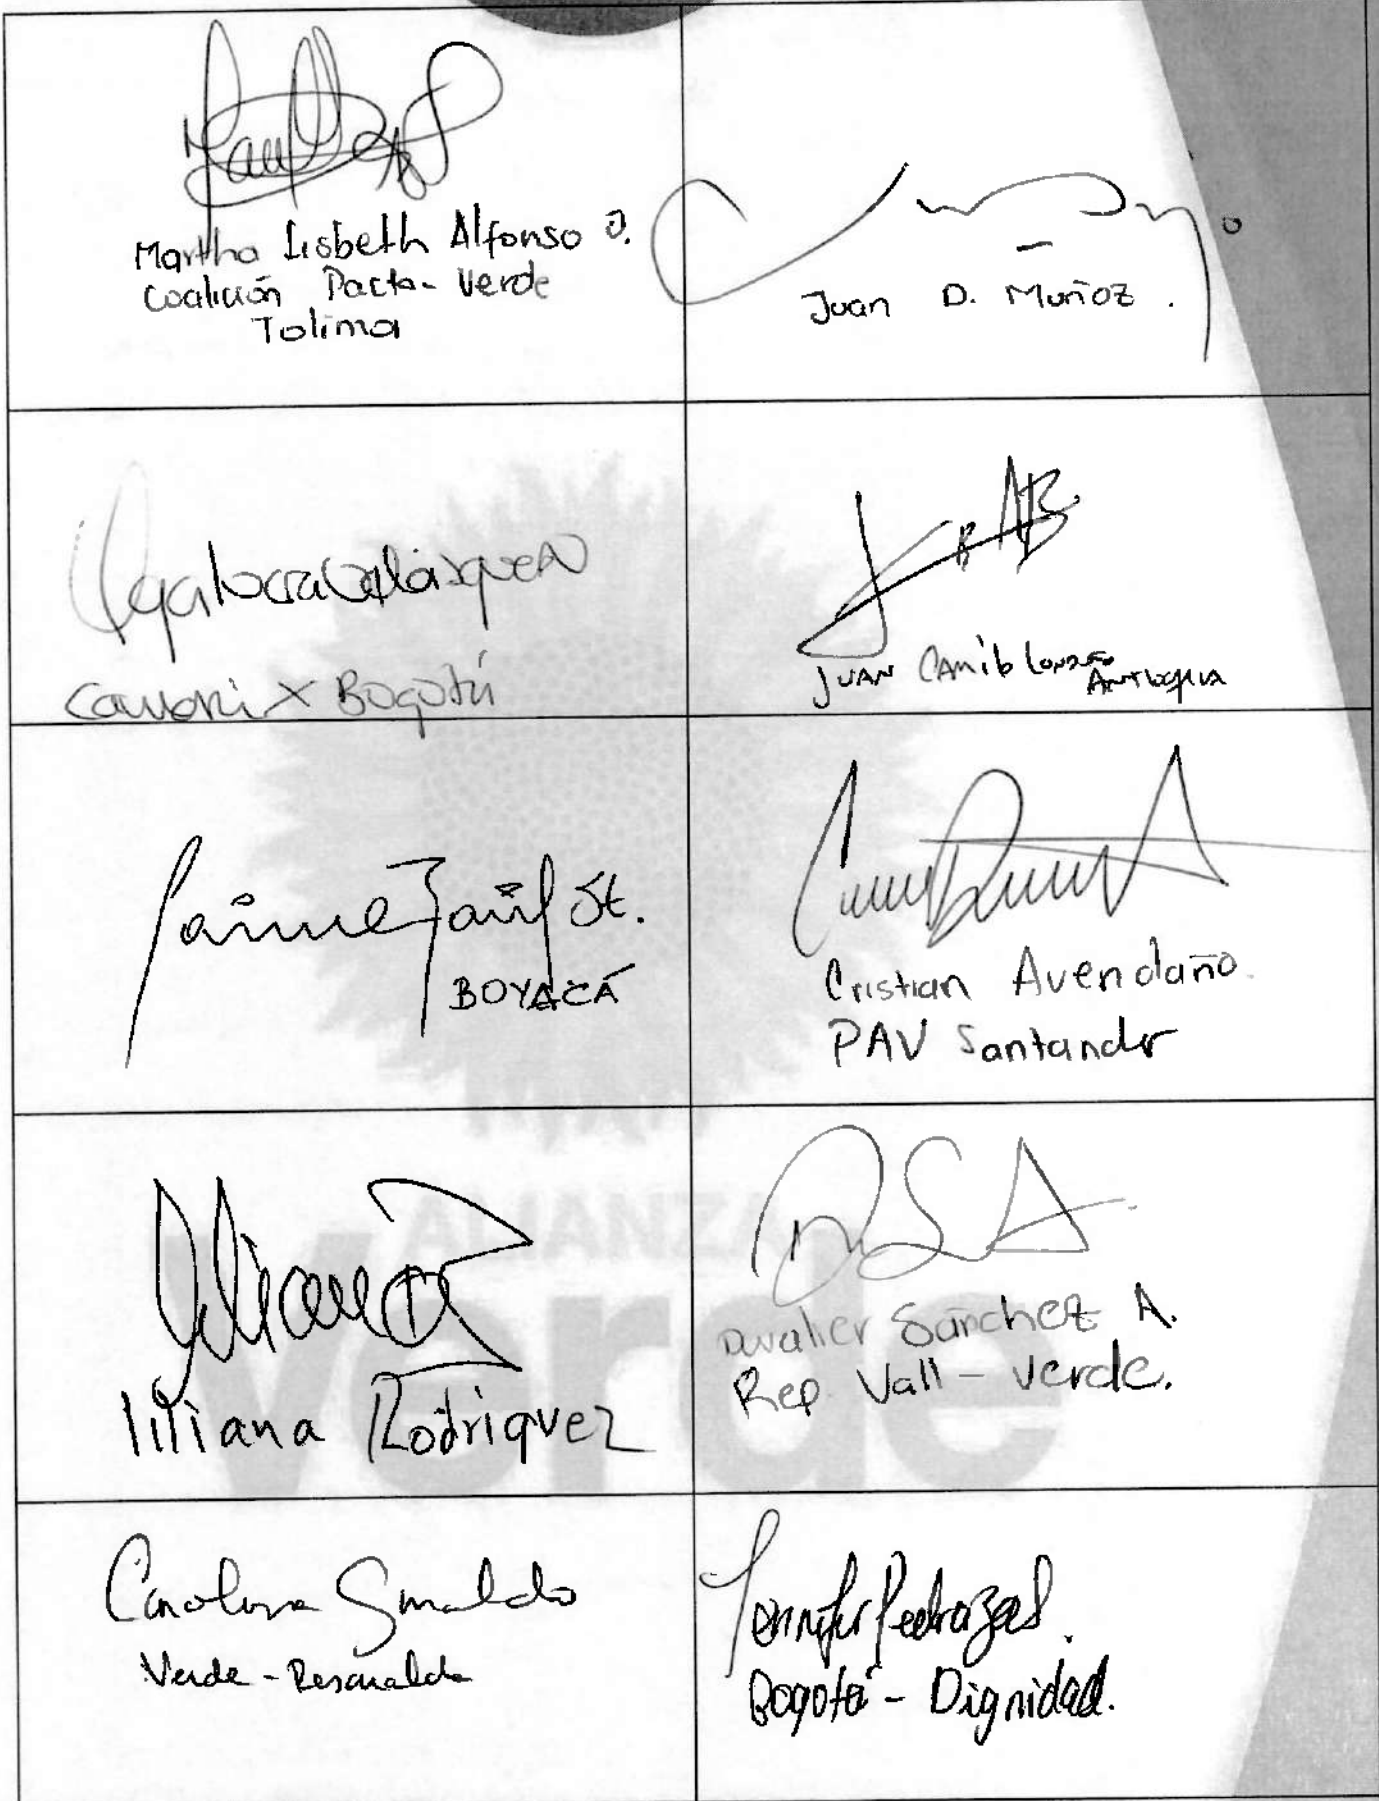 Martha Lisbeth Alfonso J.
Coalición Pacto-Verde
Tolima
Juan D. Muñoz.
Olga Lucia Velásquez
X Bogotá
JUAN Camilo Londoño
Antioquia
Jaime Raúl St.
BOYACÁ
Cristian Avendaño.
PAV Santander
liliana Rodriguez
Duvalier Sánchez A.
Rep. Vall - verde.
Carolina Giraldo
Verde - Risaralda
Jennifer Pedraza S.
Bogotá - Dignidad.
ALIANZA
verde